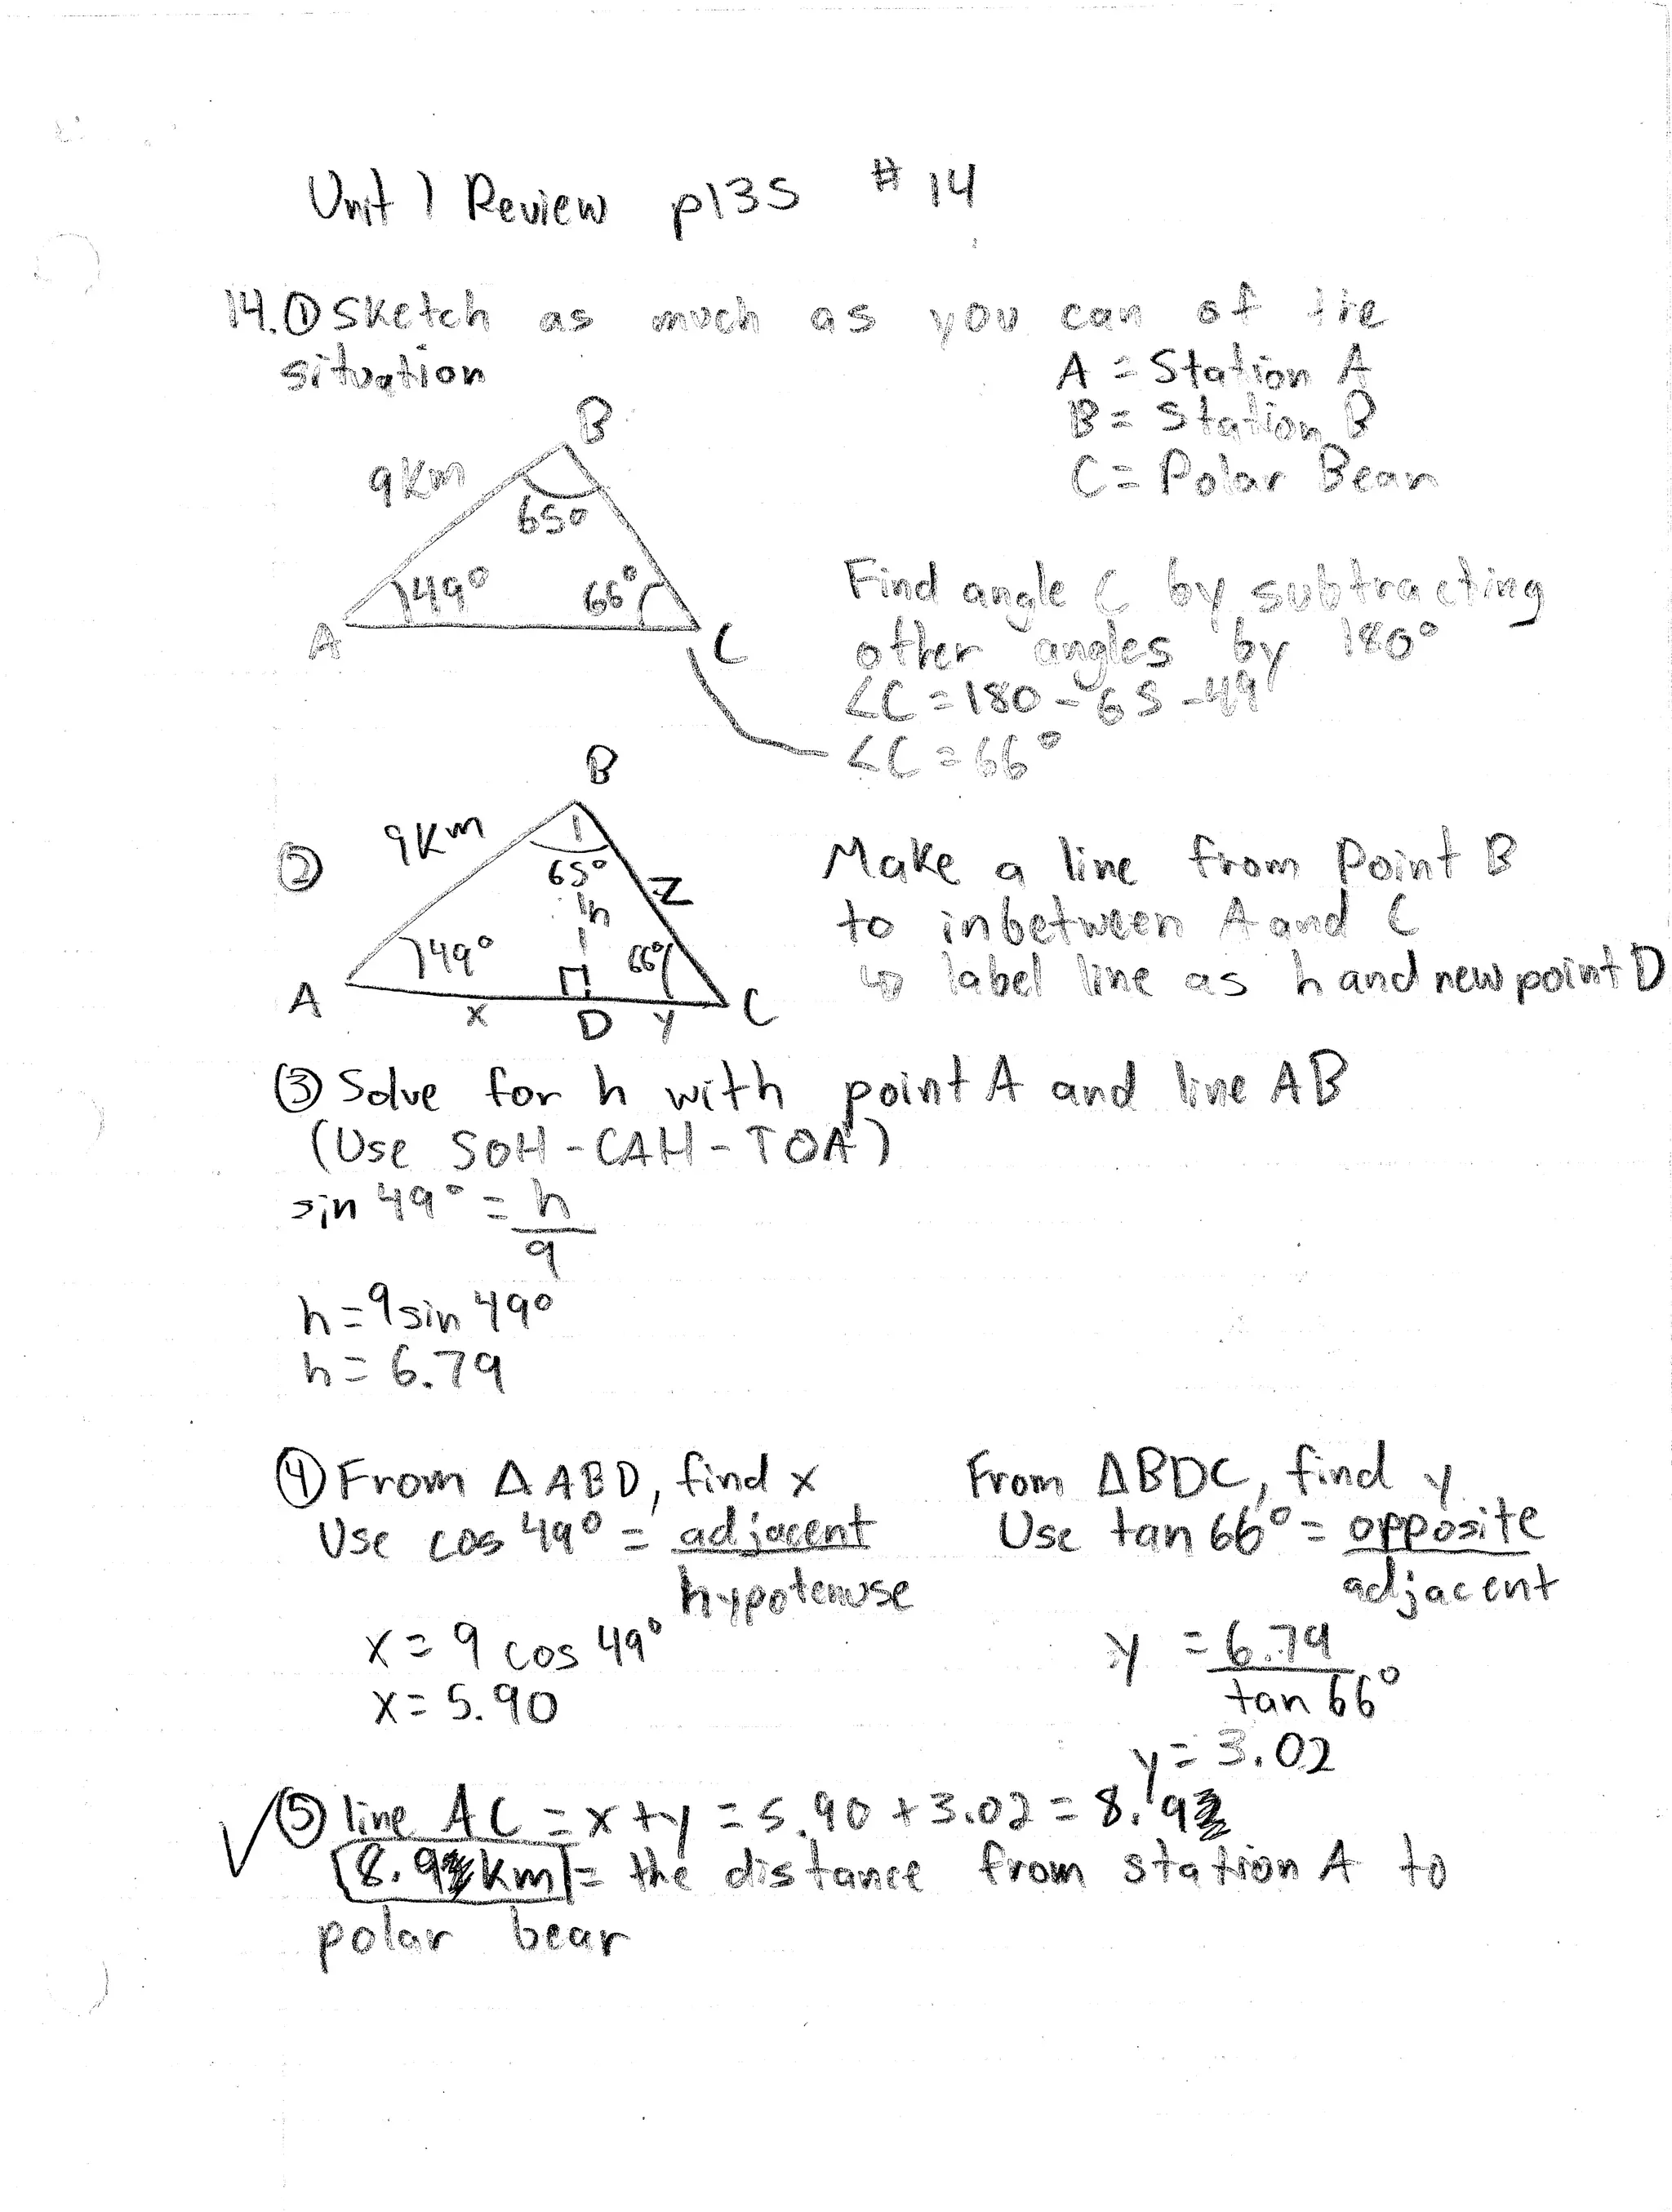 Unit 1 Review p135 # 14
14. ① Sketch as much as you can of the
situation
A = Station A
B = Station B
C = Polar Bear
B
9km
65°
49°
66°
A
C
Find angle C by subtracting
other angles by 180°
∠C = 180 - 65 - 49
∠C = 66°
B
② 9km
65°
z
h
49°
66°
A
x
D
y
C
Make a line from Point B
to inbetween A and C
↳ label line as h and new point D
③ Solve for h with point A and line AB
(Use SOH-CAH-TOA)
sin 49° = h
9
h = 9 sin 49°
h = 6.79
④ From △ABD, find x
Use cos 49° = adjacent
hypotenuse
x = 9 cos 49°
x = 5.90
From △BDC, find y
Use tan 66° = opposite
adjacent
y = 6.79
tan 66°
y = 3.02
✓ ⑤ line AC = x + y = 5.90 + 3.02 = 8.9
8.9 km = the distance from station A to
polar bear